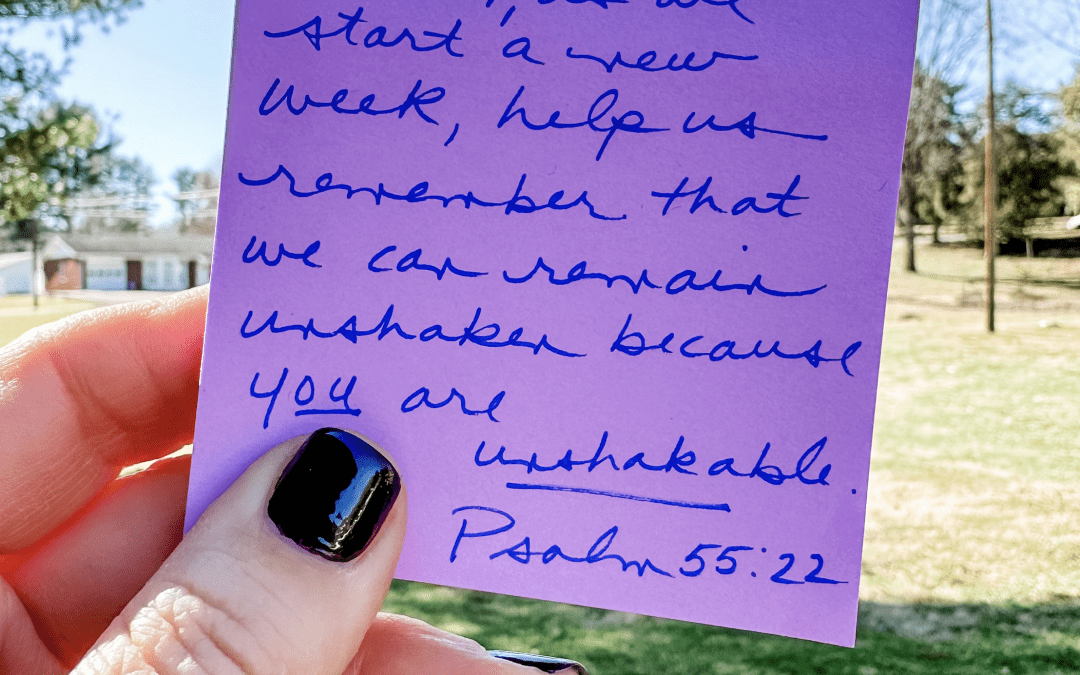 as we
start a new
week, help us
remember that
we can remain
unshaken because
you are
unshakable.
Psalm 55:22